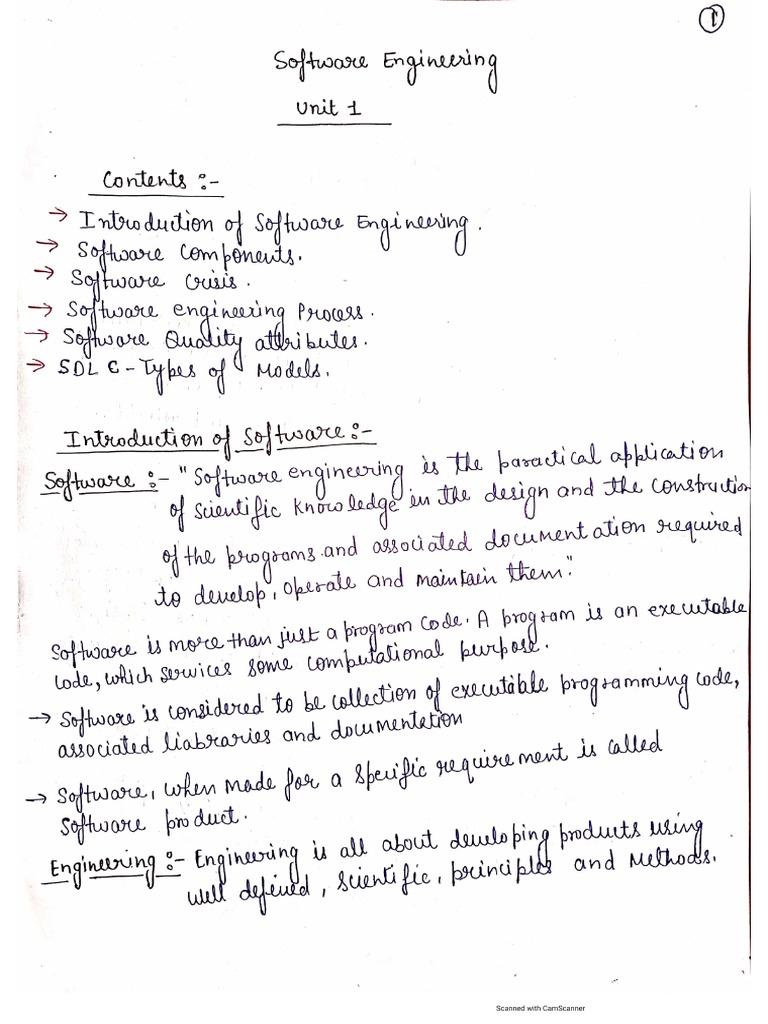 1
Software Engineering
Unit 1
Contents :-
→ Introduction of Software Engineering.
→ Software Components.
→ Software Crisis.
→ Software engineering Process.
→ Software Quality attributes.
→ SDLC - Types of Models.
Introduction of Software :-
Software :- "Software engineering is the paractical application
of scientific knowledge in the design and the construction
of the programs and associated documentation required
to develop, operate and maintain them."
Software is more than just a program code. A program is an executable
code, which services some computational purpose.
→ Software is considered to be collection of executable programming code,
associated liabraries and documentation
→ Software, when made for a specific requirement is called
software product.
Engineering :- Engineering is all about developing products using
well defined, scientific, principles and methods.
Scanned with CamScanner